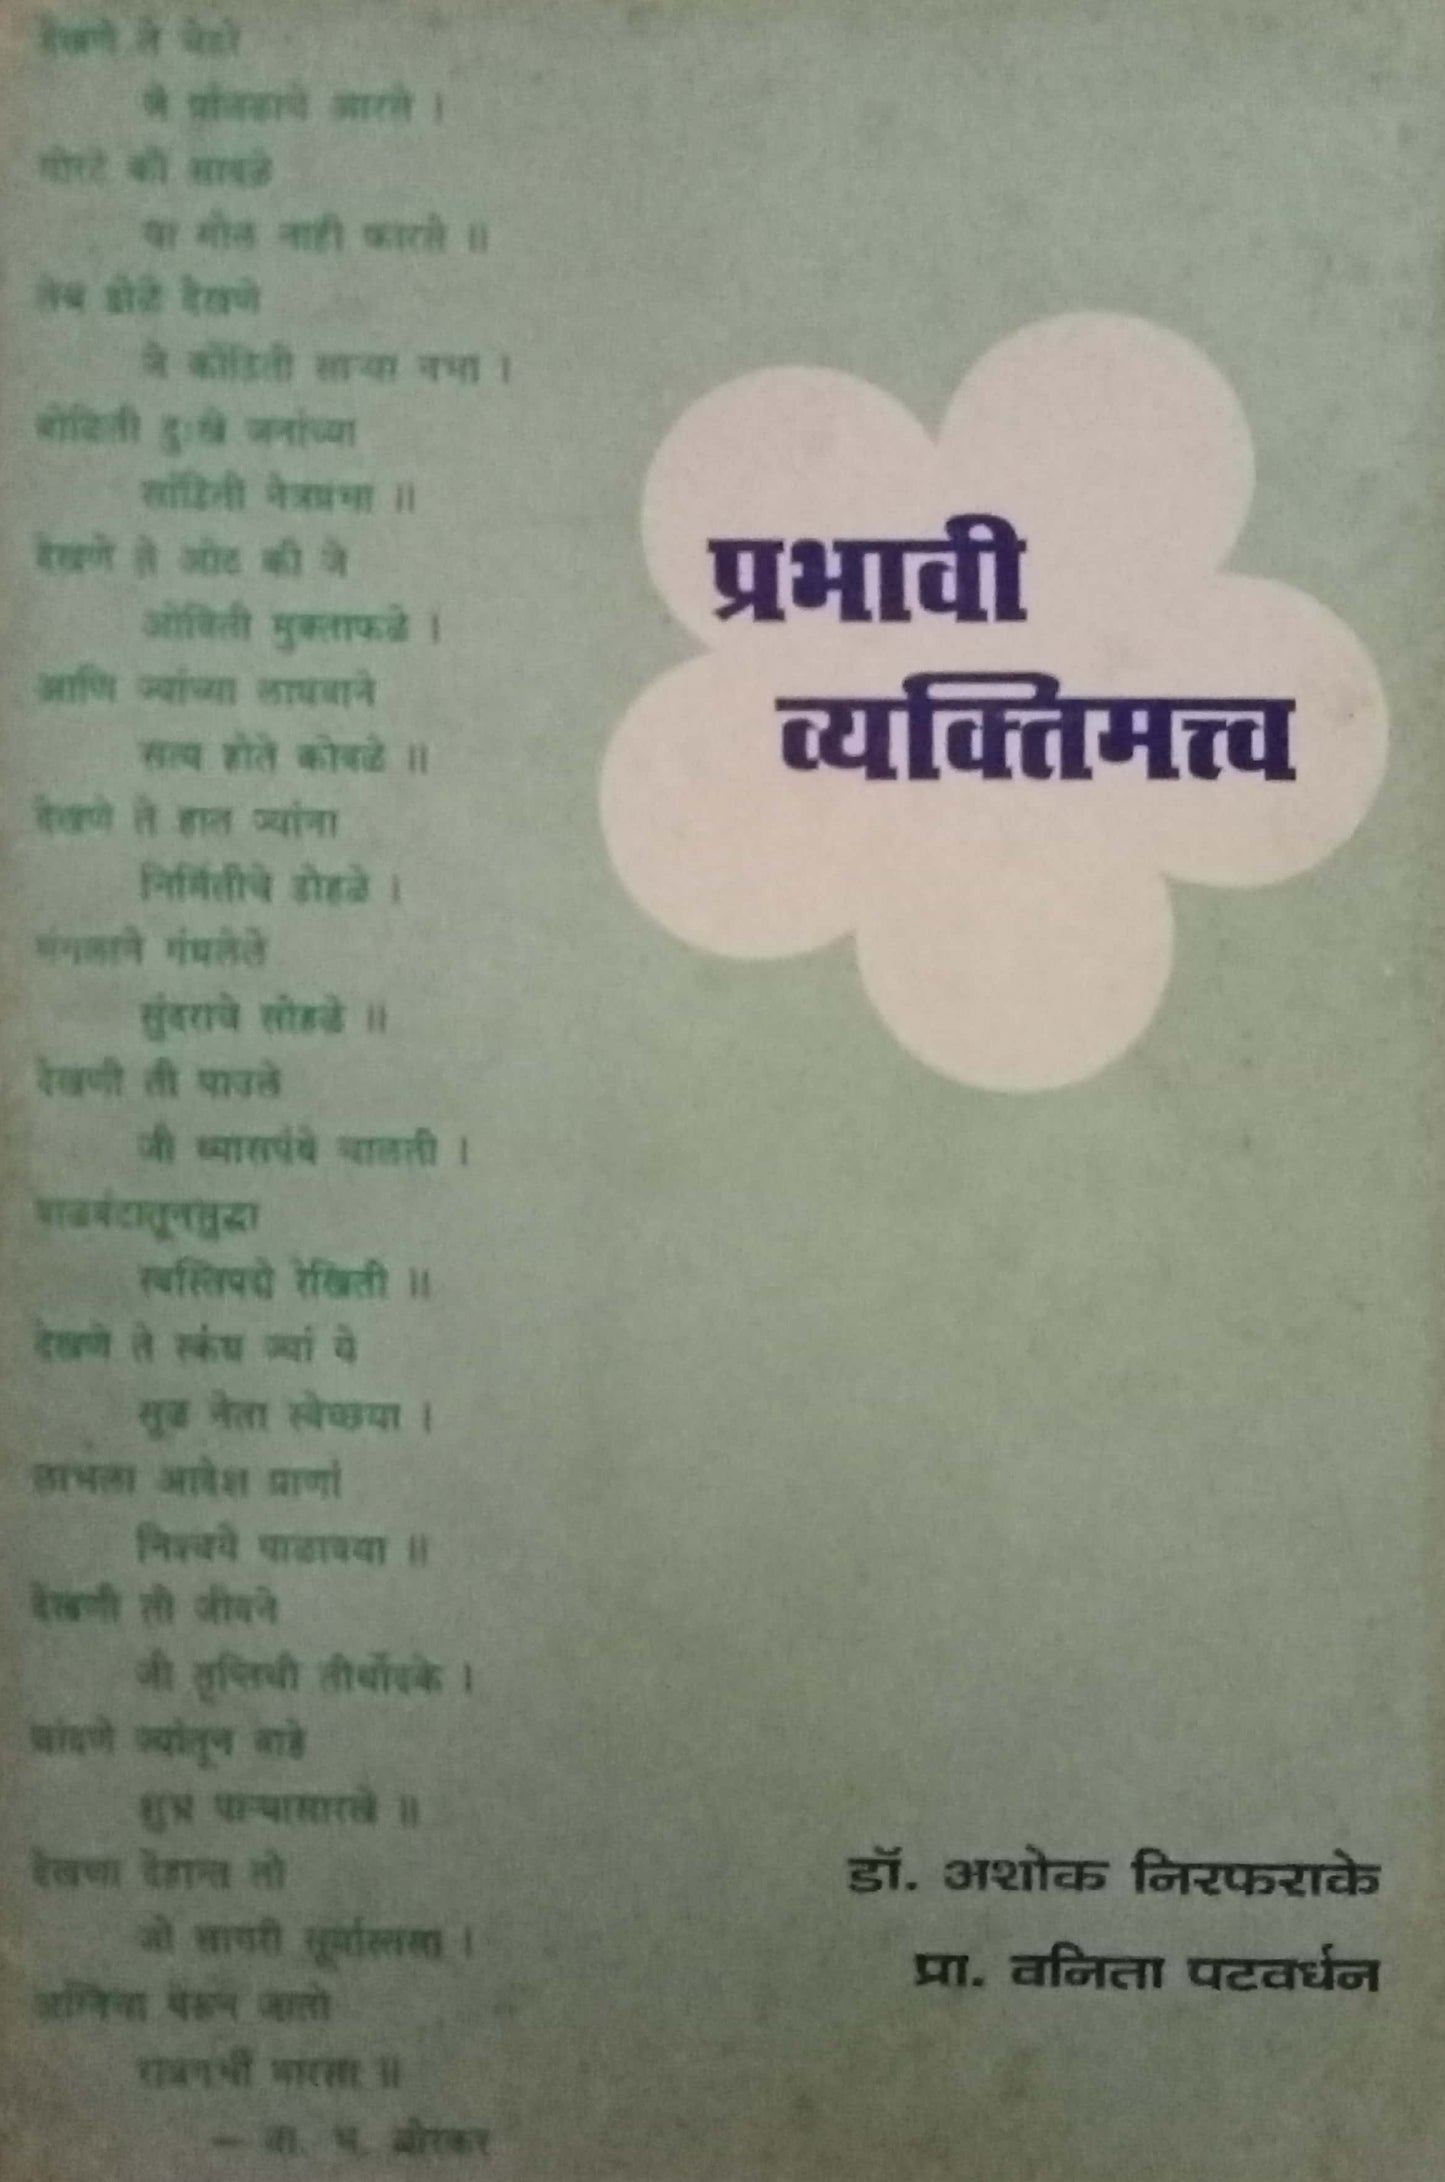 देखणे ते चेहरे
जे प्रांजळाचे आरसे ।
गोरटे की सावळे
या मोल नाही फारसे ॥
तेच डोळे देखणे
जे कोंडिती साऱ्या नभा ।
वोळिती दुःखे जनांच्या
सांडिती नेत्रप्रभा ॥
देखणे ते ओठ की जे
ओविती मुक्ताफळे ।
आणि ज्यांच्या लाघवाने
सत्य होते कोवळे ॥
देखणे ते हात ज्यांना
निर्मितीचे डोहळे ।
मंगलाने गंधलेले
सुंदराचे सोहळे ॥
देखणी ती पाउले
जी ध्यासपंथे चालती ।
वाळवंटातूनसुद्धा
स्वस्तिपद्मे रेखिती ॥
देखणे ते स्कंध ज्यां ये
सूळ नेता स्वेच्छया ।
लाभला आदेश प्राणां
निश्चये पाळावया ॥
देखणी ती जीवने
जी तृप्तिची तीर्थोदके ।
चांदणे ज्यांतून वाहे
शुभ्र पाऱ्यासारखे ॥
देखणा देहान्त तो
जो सागरी सूर्यास्तसा ।
अग्निचा पेरून जातो
रात्रगर्भी वारसा ॥
– बा. भ. बोरकर
प्रभावी
व्यक्तिमत्त्व
डॉ. अशोक निरफराके
प्रा. वनिता पटवर्धन